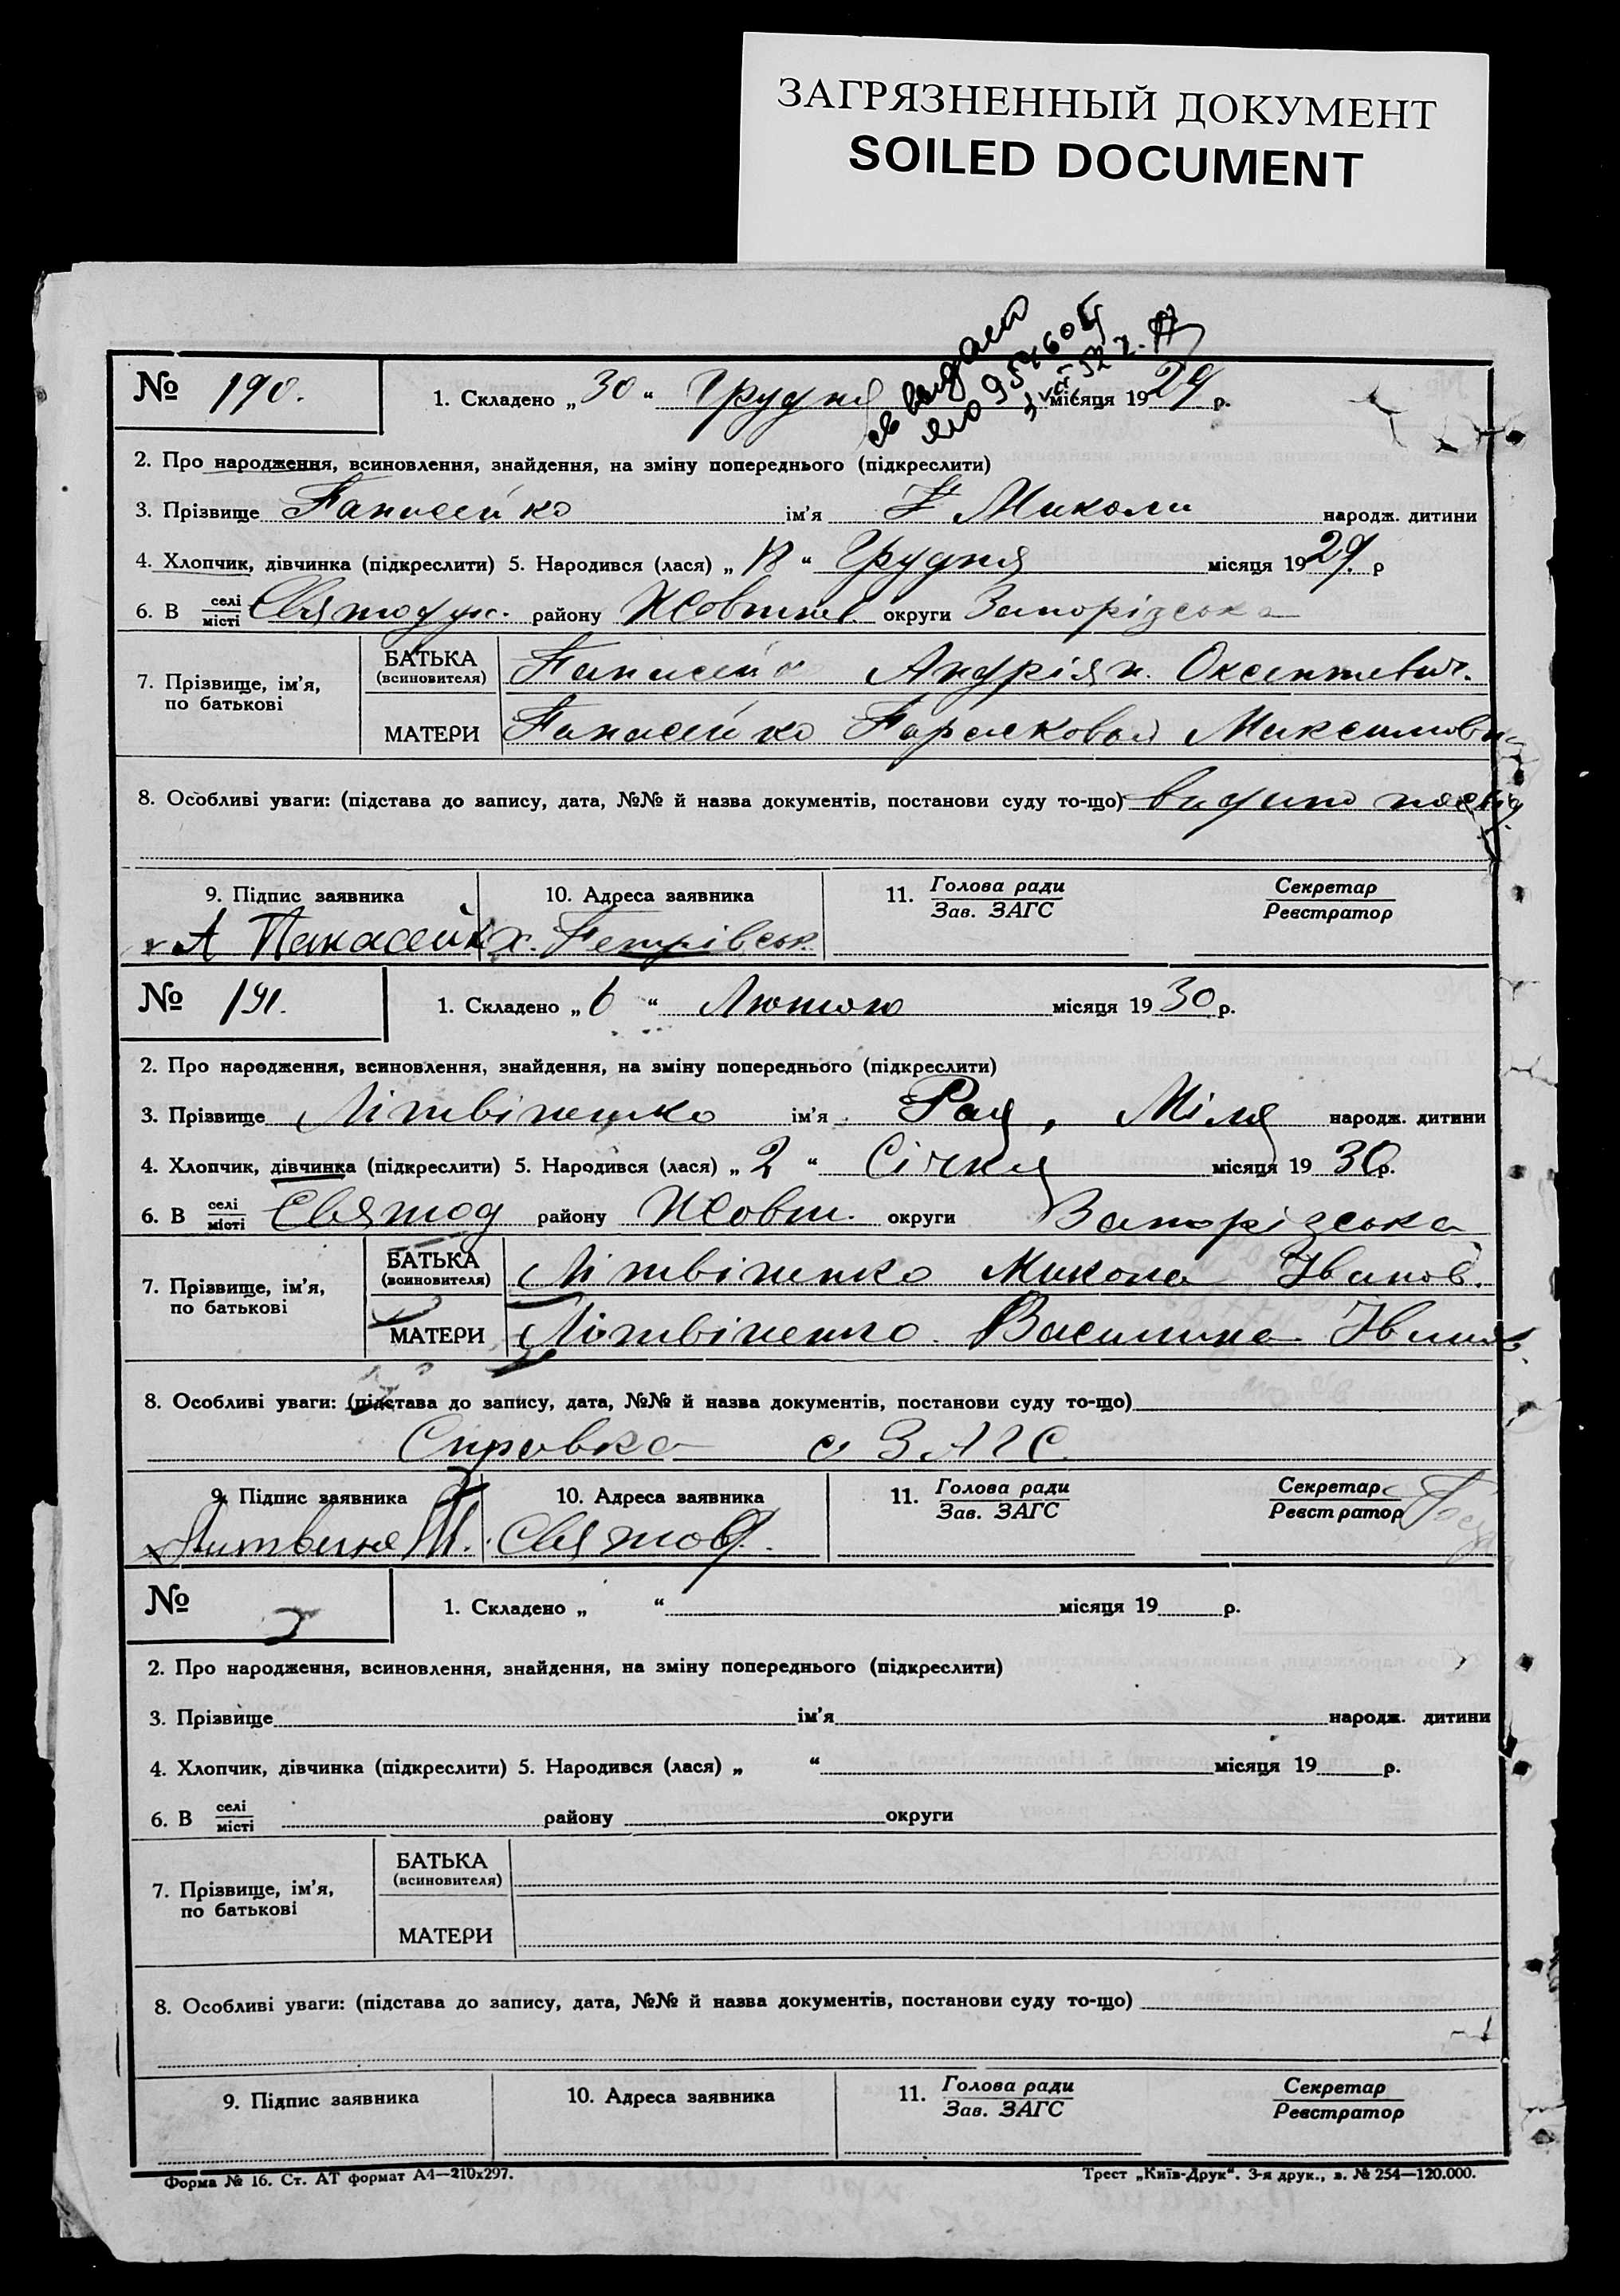 ЗАГРЯЗНЕННЫЙ ДОКУМЕНТ
SOILED DOCUMENT
№ 190. 1. Складено „ 30 “ Грудня місяця 1929 р.
2. Про народження, всиновлення, знайдення, на зміну попереднього (підкреслити)
3. Прізвище Панасейко ім’я Миколи народж. дитини
4. Хлопчик, дівчинка (підкреслити) 5. Народився (лася) „ “ Грудня місяця 1929. р
6. В селі/місті району Жовтнев. округи Запорізська
7. Прізвище, ім’я, по батькові
БАТЬКА (всиновителя) Панасейко Андріян. Оксентьевич.
МАТЕРИ Панасейко Максимовна
8. Особливі уваги: (підстава до запису, дата, №№ й назва документів, постанови суду то-що) видано
9. Підпис заявника 10. Адреса заявника 11. Голова ради/Зав. ЗАГС Секретар/Реєстратор
А Панасейк х. Петрівськ.
№ 191. 1. Складено „ 6 “ Лютого місяця 1930 р.
2. Про народження, всиновлення, знайдення, на зміну попереднього (підкреслити)
3. Прізвище Літвіненко ім’я Рая, Міля народж. дитини
4. Хлопчик, дівчинка (підкреслити) 5. Народився (лася) „ 2 “ Січня місяця 1930р.
6. В селі/місті Святод району Жовт. округи Запорізська
7. Прізвище, ім’я, по батькові
БАТЬКА (всиновителя) Літвіненко Микола Іванов.
МАТЕРИ Літвіненко. Василина Іванов
8. Особливі уваги: (підстава до запису, дата, №№ й назва документів, постанови суду то-що)
Справка с ЗАГС.
9. Підпис заявника 10. Адреса заявника 11. Голова ради/Зав. ЗАГС Секретар/Реєстратор
№ 1. Складено „ “ місяця 19 р.
2. Про народження, всиновлення, знайдення, на зміну попереднього (підкреслити)
3. Прізвище ім’я народж. дитини
4. Хлопчик, дівчинка (підкреслити) 5. Народився (лася) „ “ місяця 19 р.
6. В селі/місті району округи
7. Прізвище, ім’я, по батькові
БАТЬКА (всиновителя)
МАТЕРИ
8. Особливі уваги: (підстава до запису, дата, №№ й назва документів, постанови суду то-що)
9. Підпис заявника 10. Адреса заявника 11. Голова ради/Зав. ЗАГС Секретар/Реєстратор
Форма № 16. Ст. АТ формат А4—210х297. Трест „Київ-Друк“. 3-я друк., з. № 254—120.000.